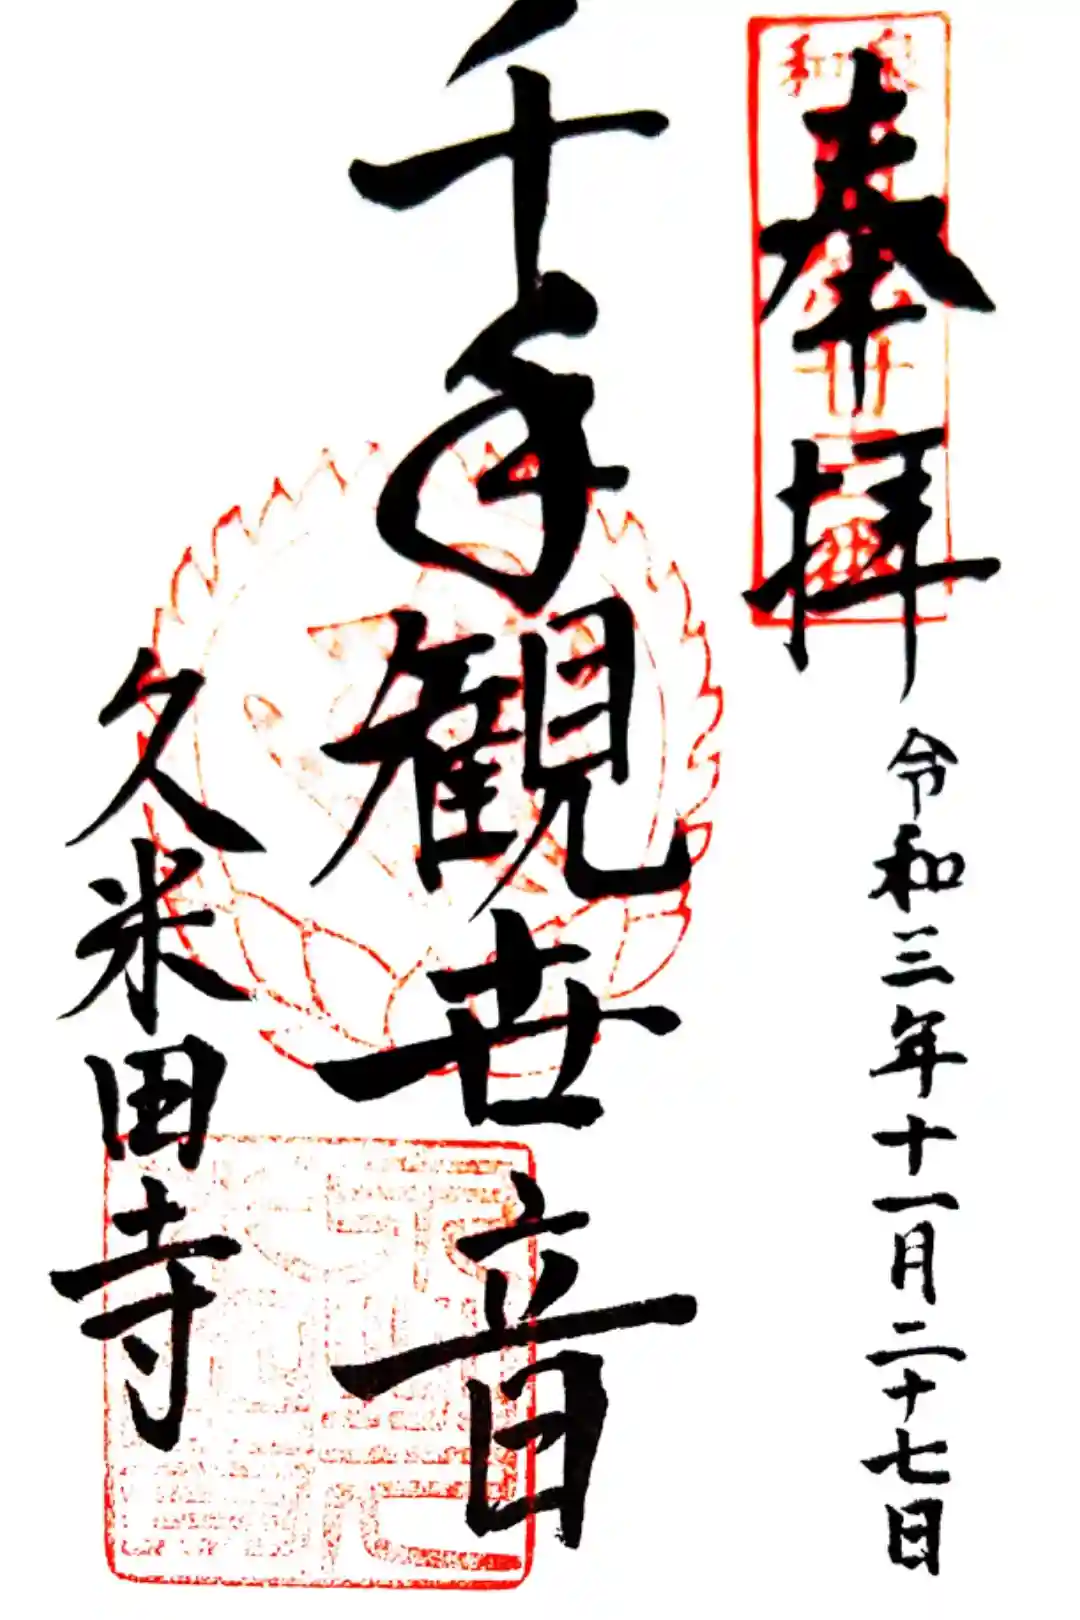 奉拝
令和三年十一月二十七日
千手観世音
久米田寺